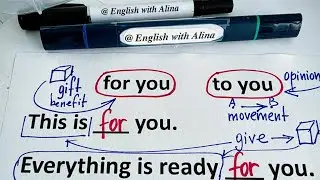 @ English with Alina
@ English with Alina
gift
benefit
for you
to you
opinion
A → B
movement
This is for you.
give →
Everything is ready for you.